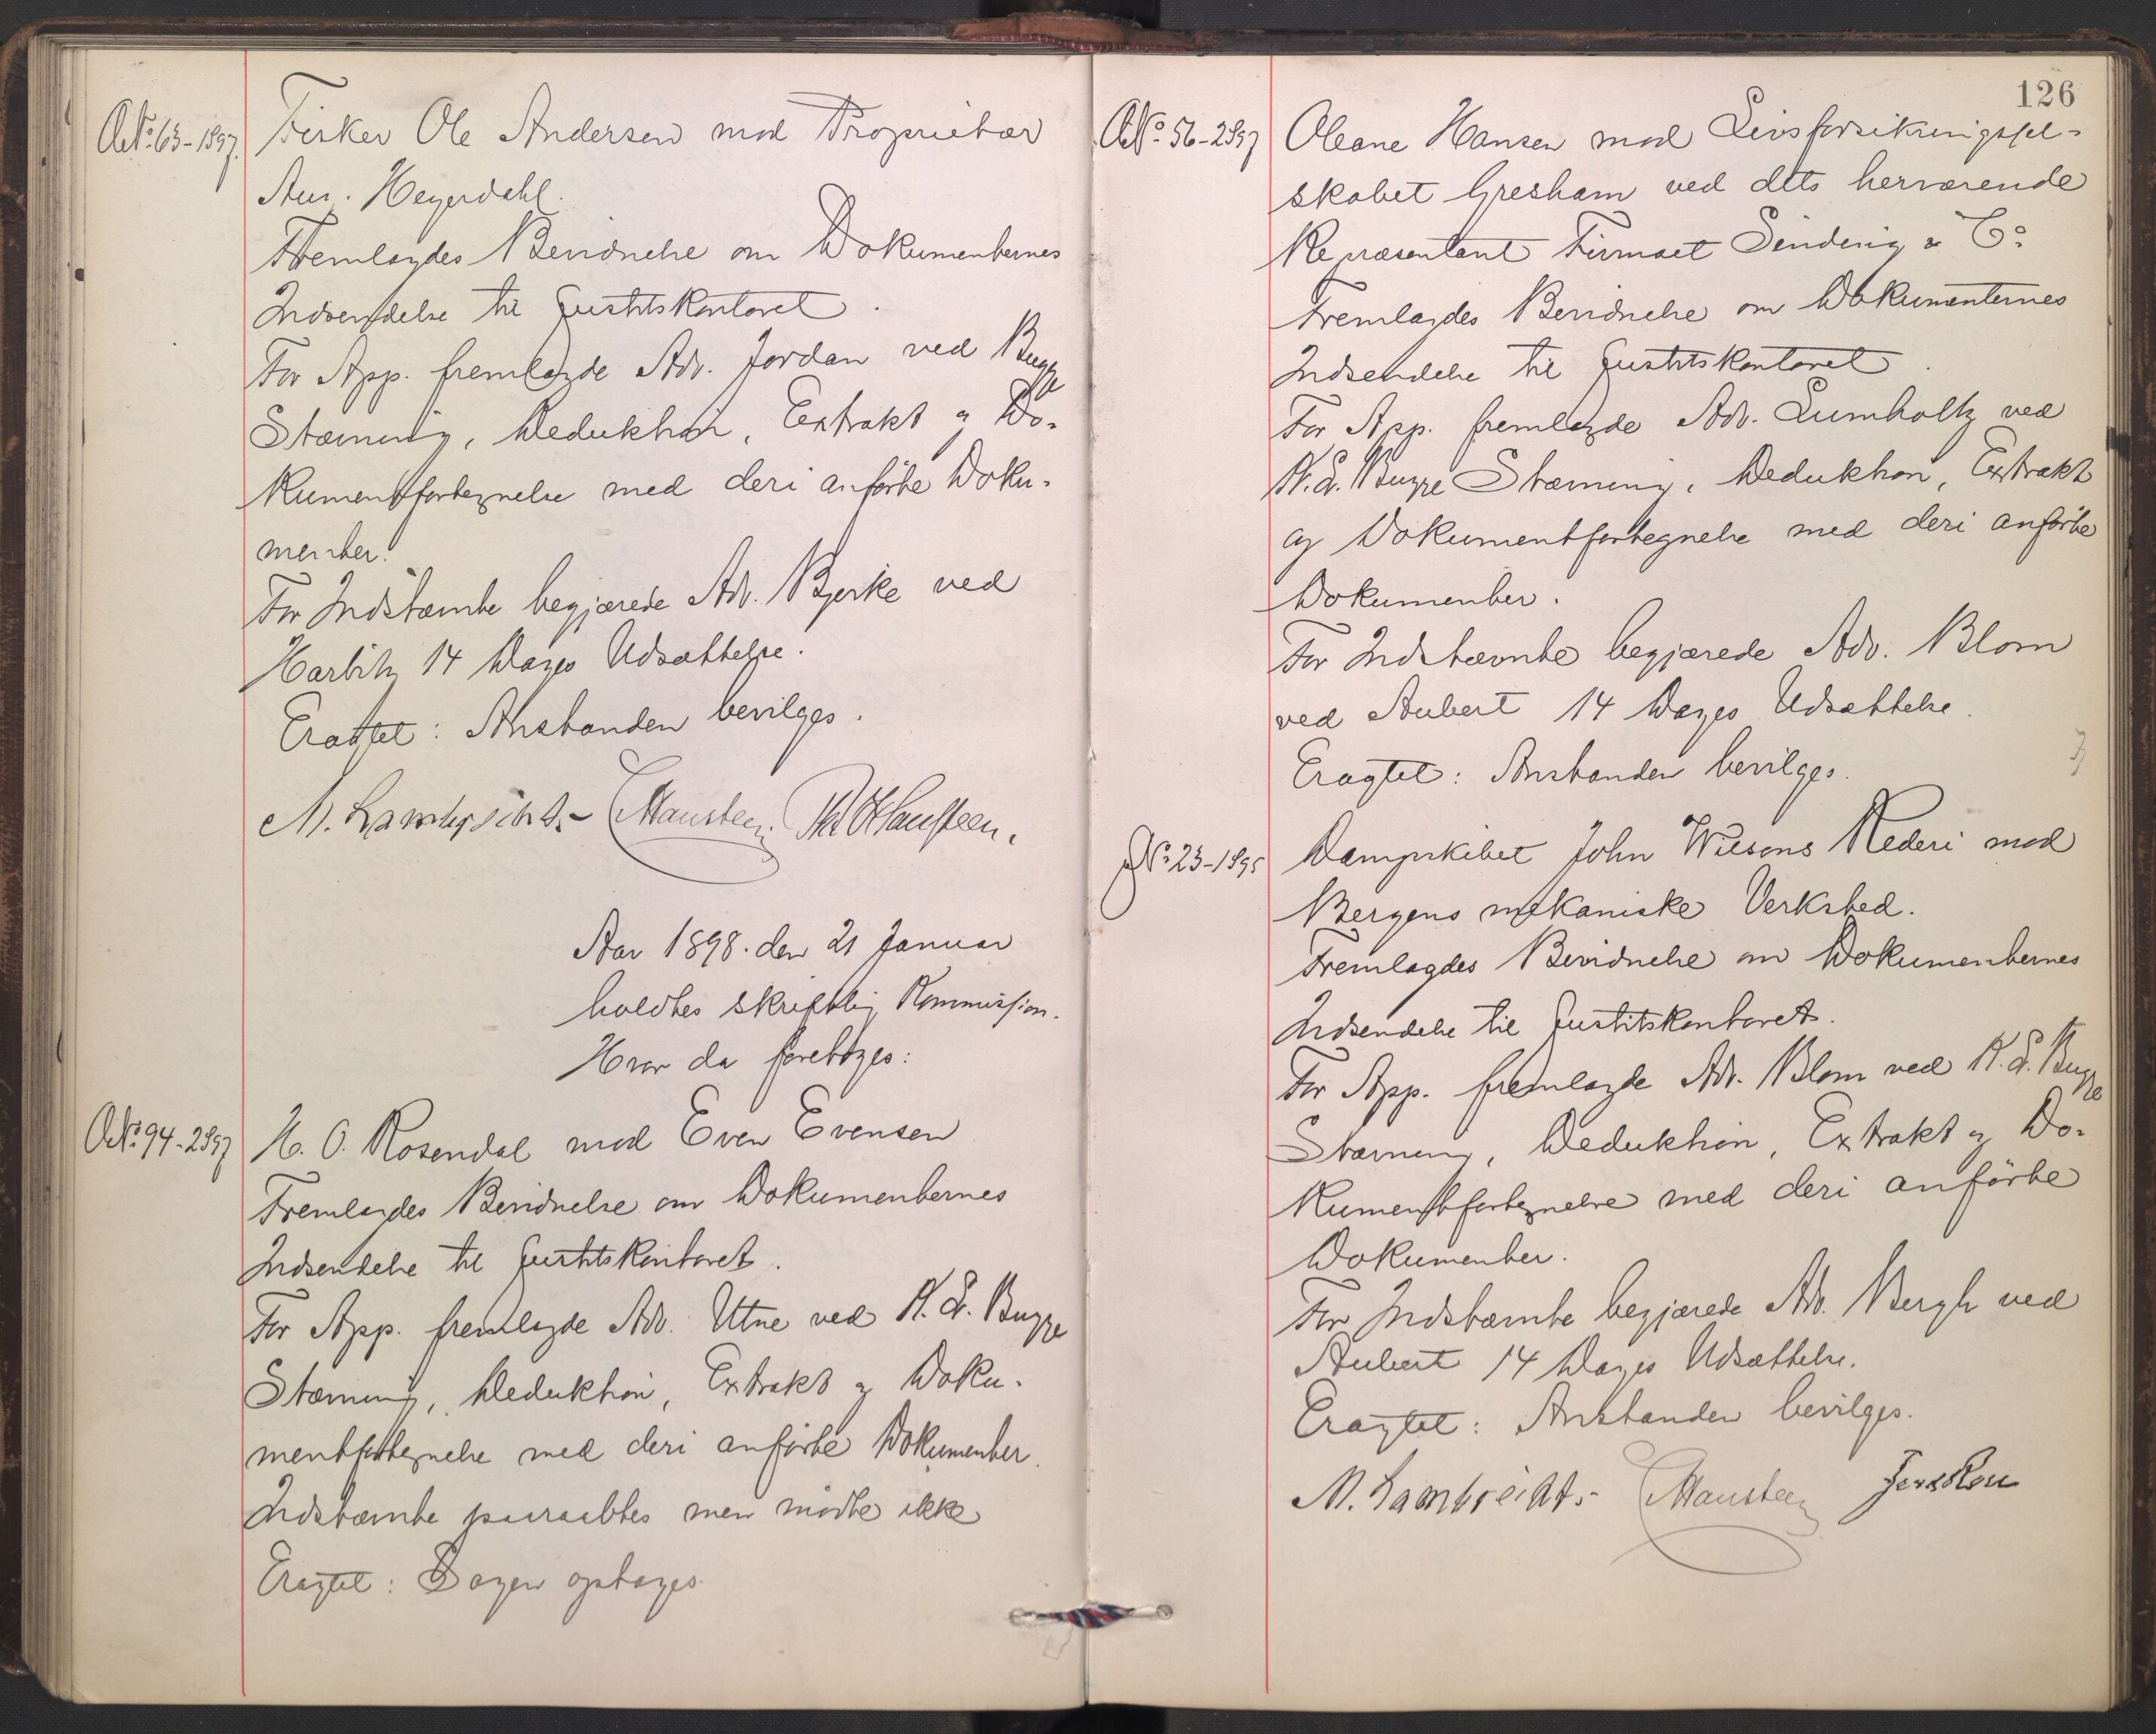 A. No. 63-1897.
Fisker Ole Andersen mod Proprietær
Aug. Heyerdahl.
Fremlagdes Bevidnelse om Dokumenternes
Indsendelse til Justitskontoret.
For App. fremlagde Adv. Jordan ved Bugge
Stævning, Deduktion, Extrakt og Do-
kumentfortegnelse med deri anførte Doku-
menter.
For Indstævnte begjærede Adv. Bjerke ved
Harbitz 14 Dages Udsættelse.
Eragtet: Anstanden bevilges.
M. Lambrechts. Mausteen
Aar 1898. den 21 Januar
holdtes skriftlig Kommission.
Hvor da foretoges:
A. No. 94-2897
H. O. Rosendal mod Even Evensen
Fremlagdes Bevidnelse om Dokumenternes
Indsendelse til Justitskontoret.
For App. fremlagde Adv. Utne ved K. L. Bugge
Stævning, Deduktion, Extrakt og Doku-
mentfortegnelse med deri anførte Dokumenter.
Indstævnte paaraabtes men mødte ikke
Eragtet: Sagen optages.
126
A. No. 56-2897
Oleane Hansen mod Livsforsikringssel-
skabet Gresham ved dets herværende
Repræsentant Firmaet Sinding & Co.
Fremlagdes Bevidnelse om Dokumenternes
Indsendelse til Justitskontoret.
For App. fremlagde Adv. Lumholtz ved
K. L. Bugge Stævning, Deduktion, Extrakt
og Dokumentfortegnelse med deri anførte
Dokumenter.
For Indstævnte begjærede Adv. Blom
ved Aubert 14 Dages Udsættelse.
Eragtet: Anstanden bevilges.
No. 23-1895
Dampskibet John Wilsons Rederi mod
Bergens mekaniske Verksted.
Fremlagdes Bevidnelse om Dokumenternes
Indsendelse til Justitskontoret.
For App. fremlagde Adv. Blom ved K. L. Bugge
Stævning, Deduktion, Extrakt og Do-
kumentfortegnelse med deri anførte
Dokumenter.
For Indstævnte begjærede Adv. Bergh ved
Aubert 14 Dages Udsættelse.
Eragtet: Anstanden bevilges.
M. Lambrechts. Mausteen